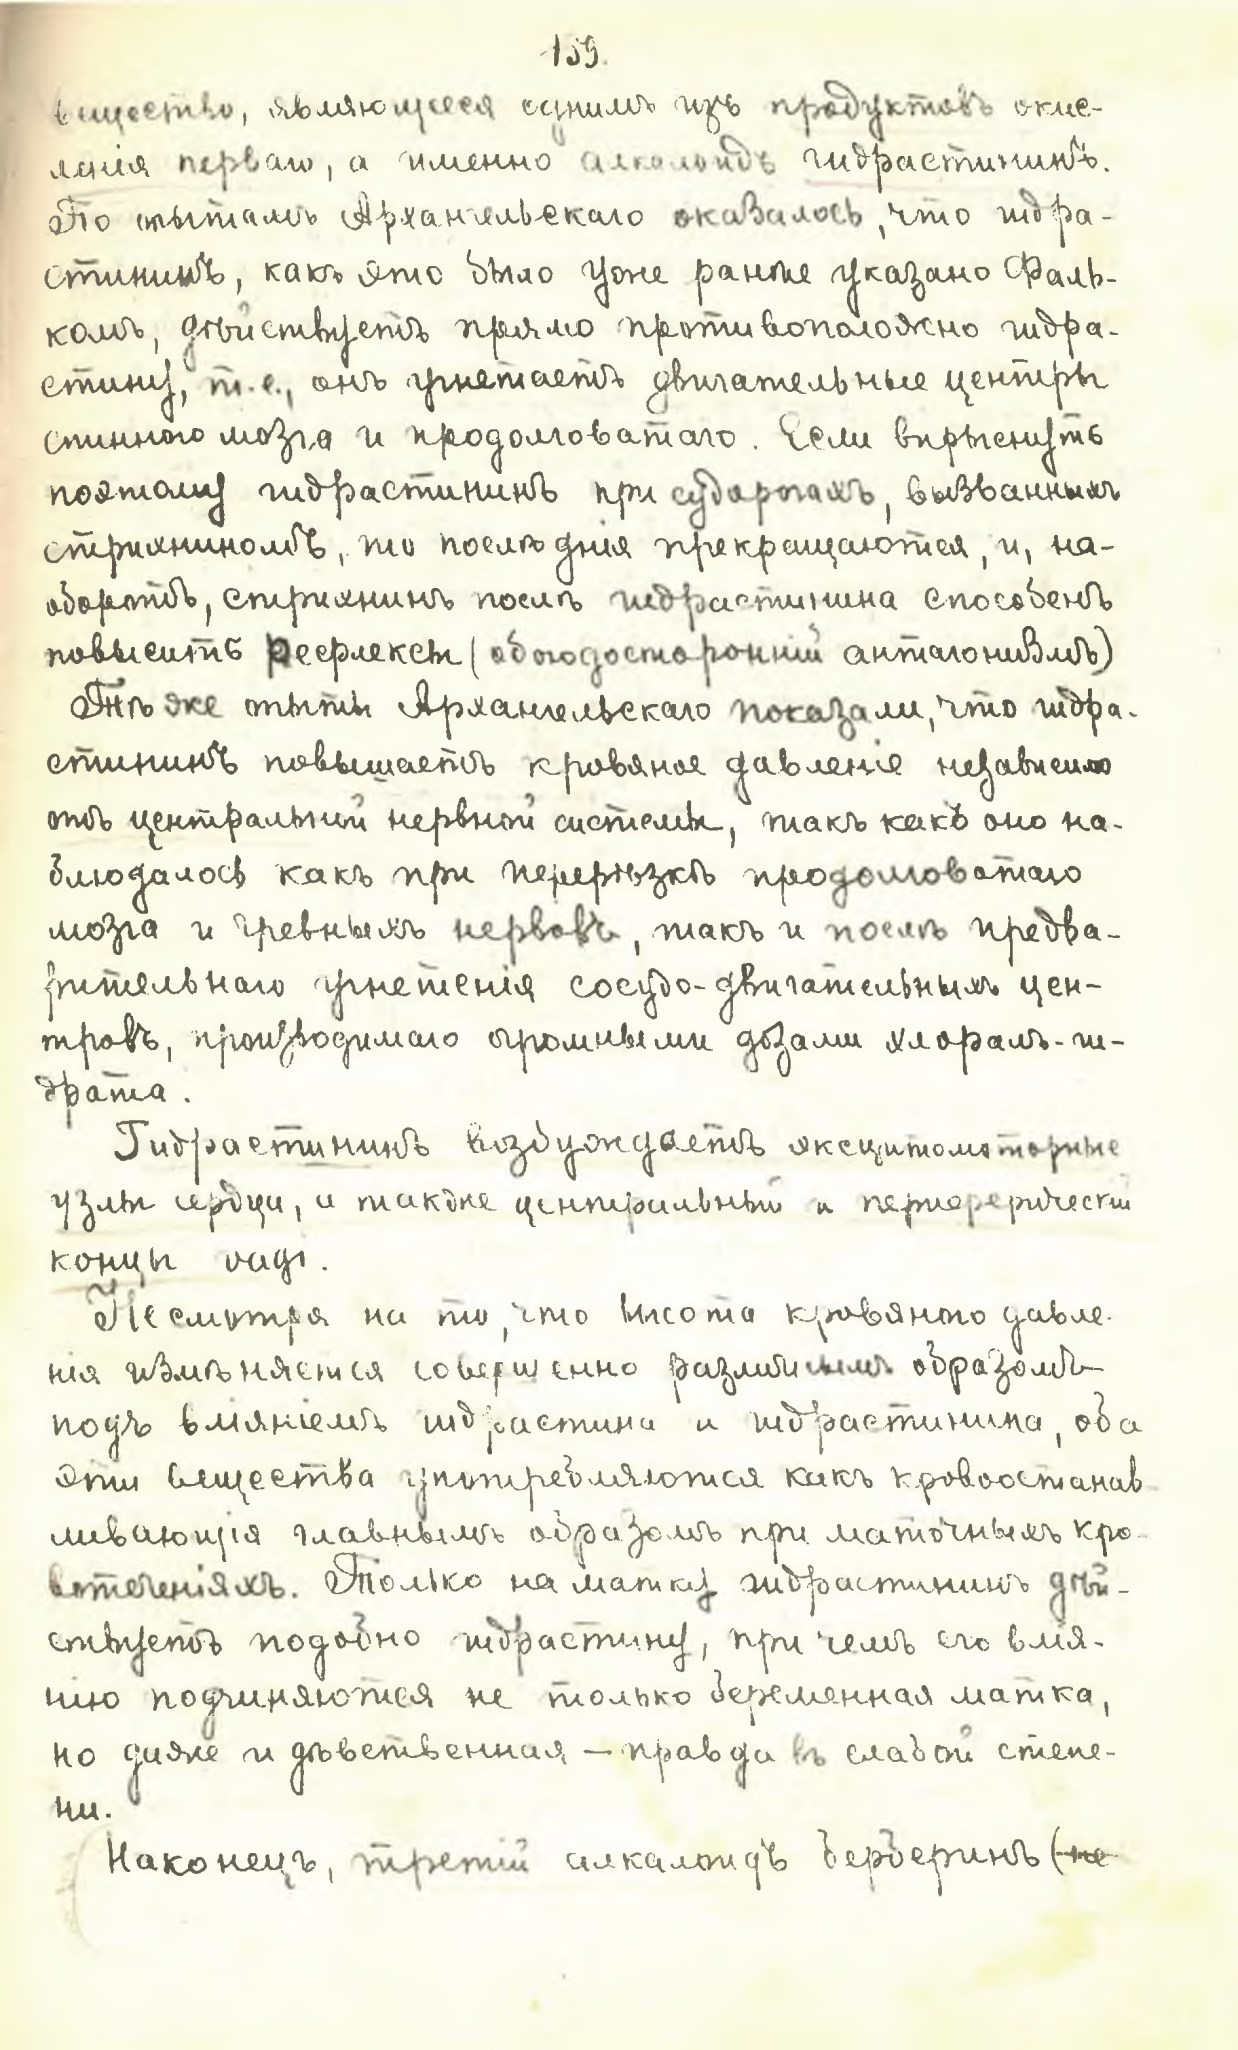 159.
вещество, являющееся однимъ изъ продуктовъ окис-
ленія перваго, а именно алкалоидъ гидрастининъ.
По опытамъ Архангельскаго оказалось, что гидра-
стининъ, какъ это было уже ранѣе указано Фаль-
комъ, дѣйствуетъ прямо противоположно гидра-
стину, т.е., онъ угнетаетъ двигательные центры
спинного мозга и продолговатаго. Если впрыснуть
поэтому гидрастининъ при судорогахъ, вызванныхъ
стрихниномъ, то послѣднія прекращаются, и, на-
оборотъ, стрихнинъ послѣ гидрастинина способенъ
повысить рефлексы (обоюдосторонній антагонизмъ)
Тѣ же опыты Архангельскаго показали, что гидра-
стининъ повышаетъ кровяное давленіе независимо
отъ центральной нервной системы, такъ какъ оно на-
блюдалось какъ при перерѣзкѣ продолговатаго
мозга и чревныхъ нервовъ, такъ и послѣ предва-
рительнаго угнетенія сосудо-двигательныхъ цен-
тровъ, производимаго огромными дозами хлоралъ-ги-
драта.
Гидрастининъ возбуждаетъ эксцитомоторные
узлы сердца, а также центральный и периферическій
концы vagi.
Несмотря на то, что высота кровяного давле-
нія измѣняется совершенно различнымъ образомъ
подъ вліяніемъ гидрастина и гидрастинина, оба
эти вещества употребляются какъ кровоостанав-
ливающія главнымъ образомъ при маточныхъ кро-
вотеченіяхъ. Только на матку гидрастининъ дѣй-
ствуетъ подобно гидрастину, при чемъ его влія-
нію подчиняются не только беременная матка,
но даже и дѣвственная — правда въ слабой степе-
ни.
Наконецъ, третій алкалоидъ берберинъ (не